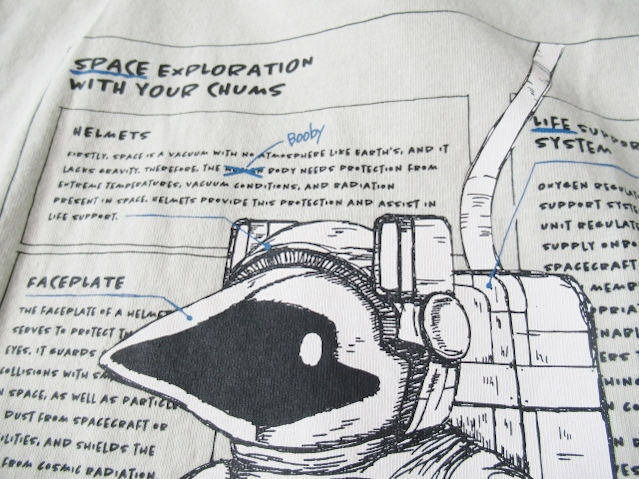 SPACE EXPLORATION
WITH YOUR CHUMS
HELMETS
Booby
FIRSTLY, SPACE IS A VACUUM WITH NO ATMOSPHERE LIKE EARTH'S, AND IT
LACKS GRAVITY. THEREFORE, THE BODY NEEDS PROTECTION FROM
EXTREME TEMPERATURES, VACUUM CONDITIONS, AND RADIATION
PRESENT IN SPACE. HELMETS PROVIDE THIS PROTECTION AND ASSIST IN
LIFE SUPPORT.
FACEPLATE
THE FACEPLATE OF A HELMET
SERVES TO PROTECT
EYES. IT GUARDS
COLLISIONS WITH
SPACE, AS WELL AS PARTICLE
DUST FROM SPACECRAFT OR
AND SHIELDS THE
FROM COSMIC RADIATION
LIFE SUPPORT
SYSTEM
OXYGEN
SUPPORT
UNIT
SUPPLY
SPACECRAFT